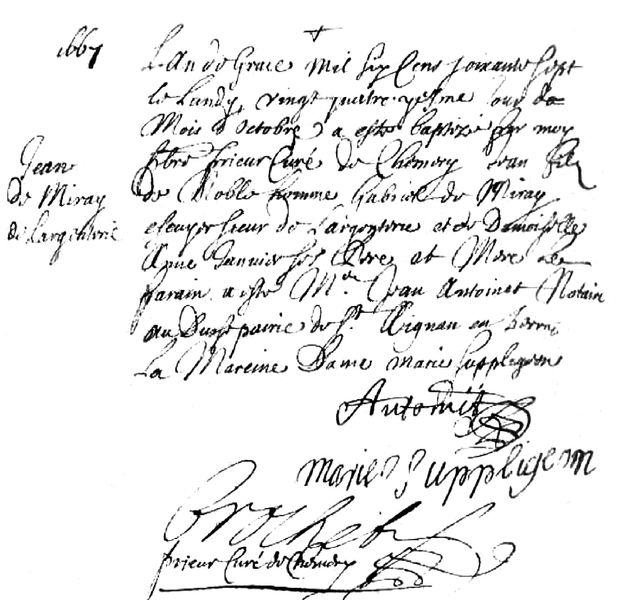 1667
Jean
De Miray
de Largenterie
L'An de Grace Mil six Cens soixante sept
le Lundy, vingt quatre yesme Jour de
Mois d'Octobre, a esté baptizé par moy
frère prieur Curé de Chemery Jean filz
de Noble homme Gabriel de Miray
escuyer sieur de Largenterie et de Damoiselle
Anne Jannier ses Pere et Mere Le
parain a esté Me Jean Antoinet Notaire
au Duché pairie de St Aignan en berri
La Mareine Dame marie Suppligeon
Antoinet
Marie Suppligeon
Brochet
prieur Curé de Chémery